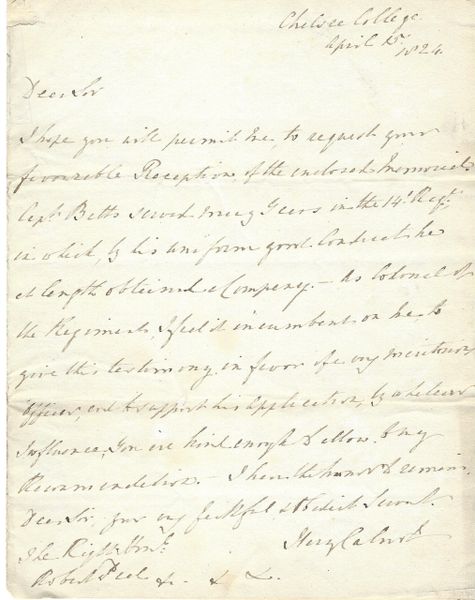 Chelsea College
April 15th
1824.
Dear Sir
I hope you will permit me, to request your
favourable Reception, of the enclosed Memorial
Capt. Betts served many Years in the 14t. Regt.
in which, by his uniform good Conduct he
at length obtained a Company. - As Colonel of
the Regiment, I feel it incumbent on me, to
give this testimony in favor of a very meritorious
Officer, and to support his Application, by whatever
Influence, You are kind enough to allow to my
Recommendation. - I have the honor to remain,
Dear Sir, your very faithful & Obedient Servant.
Harry Calvert
The Right Honl.
Robert Peel &. &. &.